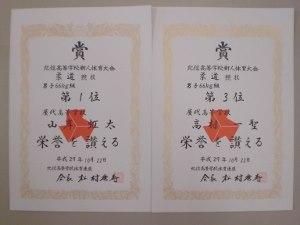 賞
北信高等学校新人体育大会
柔道 賞状
男子66kg級
第1位
屋代高等学校
山 太
栄誉を讃える
平成29年10月22日
北信高等学校体育連盟
会長 村
賞
北信高等学校新人体育大会
柔道 賞状
男子66kg級
第3位
屋代高等学校
高 一聖
栄誉を讃える
平成29年10月22日
北信高等学校体育連盟
会長 村